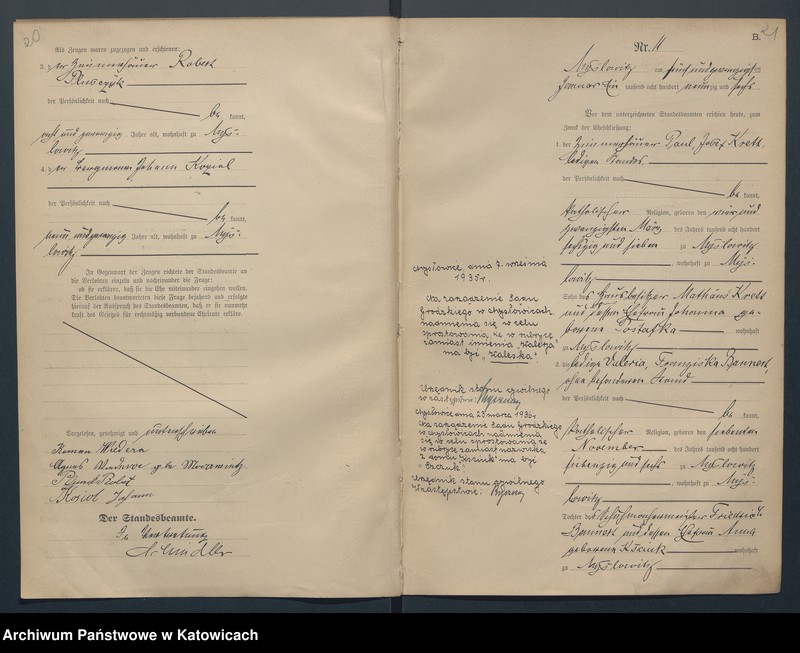 20
Als Zeugen waren zugezogen und erschienen:
3. der Zimmerhäuer Robert
der Persönlichkeit nach
be kannt,
Jahre alt, wohnhaft zu Mys-
lowitz
4. der Bergmann Johann Koziol
der Persönlichkeit nach
be kannt,
neun und zwanzig Jahre alt, wohnhaft zu Mys-
lowitz
In Gegenwart der Zeugen richtete der Standesbeamte an
die Verlobten einzeln und nacheinander die Frage:
ob sie erklären, daß sie die Ehe miteinander eingehen wollen.
Die Verlobten beantworteten diese Frage bejahend und erfolgte
hierauf der Ausspruch des Standesbeamten, daß er sie nunmehr
kraft des Gesetzes für rechtmäßig verbundene Eheleute erkläre.
Vorgelesen, genehmigt und unterschrieben
Roman
Agnes
Koziol Johann
Der Standesbeamte.
In Vertretung
B.
21
Nr. 11
Myslowitz am fünf und zwanzigsten
Januar Ein tausend acht hundert neunzig und sechs
Vor dem unterzeichneten Standesbeamten erschien heute, zum
Zweck der Eheschließung:
1. der Zimmerhäuer Paul, Josef
ledigen Standes
der Persönlichkeit nach
be kannt,
katholischer Religion, geboren den vier und
zwanzigsten März des Jahres tausend acht hundert
sechzig und sieben zu Myslowitz
, wohnhaft zu Mys-
lowitz
Sohn des Hausbesitzer Mathäus
und dessen Ehefrau Johanna ge-
borene wohnhaft
zu Myslowitz
2. die ledige Valeria, Franziska Bannert,
ohne besonderen Stand
der Persönlichkeit nach
be kannt,
katholischer Religion, geboren den siebenten
November des Jahres tausend acht hundert
siebenzig und sechs zu Myslowitz
, wohnhaft zu Mys-
lowitz
Tochter des Schuhmachermeister Friedrich
Bannert und dessen Ehefrau Anna
geborene wohnhaft
zu Myslowitz
Mysłowice, dnia 7. września
1935 r.
Na zarządzenie Sądu
Grodzkiego w Mysłowicach
nadmienia się w celu
sprostowania, że w rubryce
zamiast imienia „Valerja"
ma być „Waleska".
Urzędnik stanu cywilnego
w zastępstwie:
Mysłowice dnia 23 marca 1936 r.
Na zarządzenie Sądu Grodzkiego
w Mysłowicach nadmienia
się w celu sprostowania, że
w rubryce zamiast nazwiska
ma być
Urzędnik stanu cywilnego
W zastępstwie:
Archiwum Państwowe w Katowicach